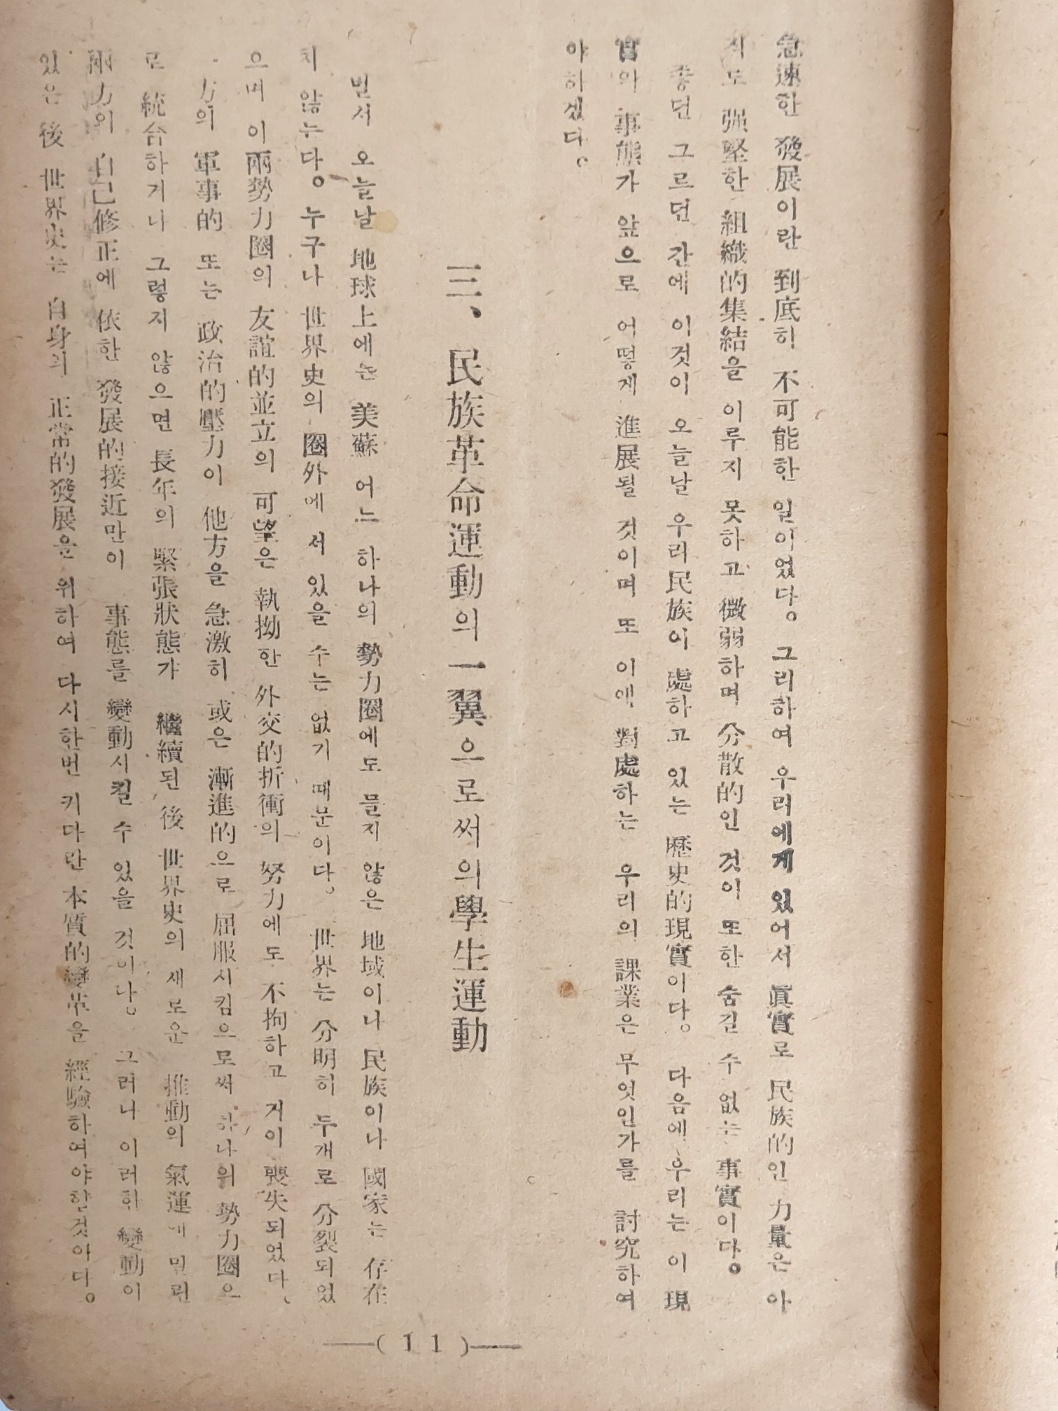 急速한 發展이란 到底히 不可能한 일이었다。 그리하여 우리에게 있어서 眞實로 民族的인 力量은 아
직도 强堅한 組織的集結을 이루지 못하고 微弱하며 分散的인 것이 또한 숨길 수 없는 事實이다。
좋던 그르던 간에 이것이 오늘날 우리民族이 處하고 있는 歷史的現實이다。 다음에 우리는 이 現
實의 事態가 앞으로 어떻게 進展될 것이며 또 이에 對處하는 우리의 課業은 무엇인가를 討究하여
야하겠다。
三、民族革命運動의 一翼으로써의 學生運動
벌서 오늘날 地球上에는 美蘇 어느 하나의 勢力圈에도 들지 않은 地域이나 民族이나 國家는 存在
치 않는다。 누구나 世界史의 圈外에 서 있을 수는 없기 때문이다。 世界는 分明히 두개로 分裂되었
으며 이 兩勢力圈의 友誼的並立의 可望은 執拗한 外交的折衝의 努力에도 不拘하고 거이 喪失되었다、
方의 軍事的 또는 政治的壓力이 他方을 急激히 或은 漸進的으로 屈服시킴으로써 하나의 勢力圈으
로 統合하거나 그렇지 않으면 長年의 緊張狀態가 繼續된 後 世界史의 새로운 推動의 氣運에 밀린
兩力의 自己修正에 依한 發展的接近만이 事態를 變動시킬 수 있을 것이다。 그러나 이러한 變動이
있은 後 世界史는 自身의 正常的發展을 위하여 다시한번 커다란 本質的變革을 經驗하여야할것이다。
——( 11 )——